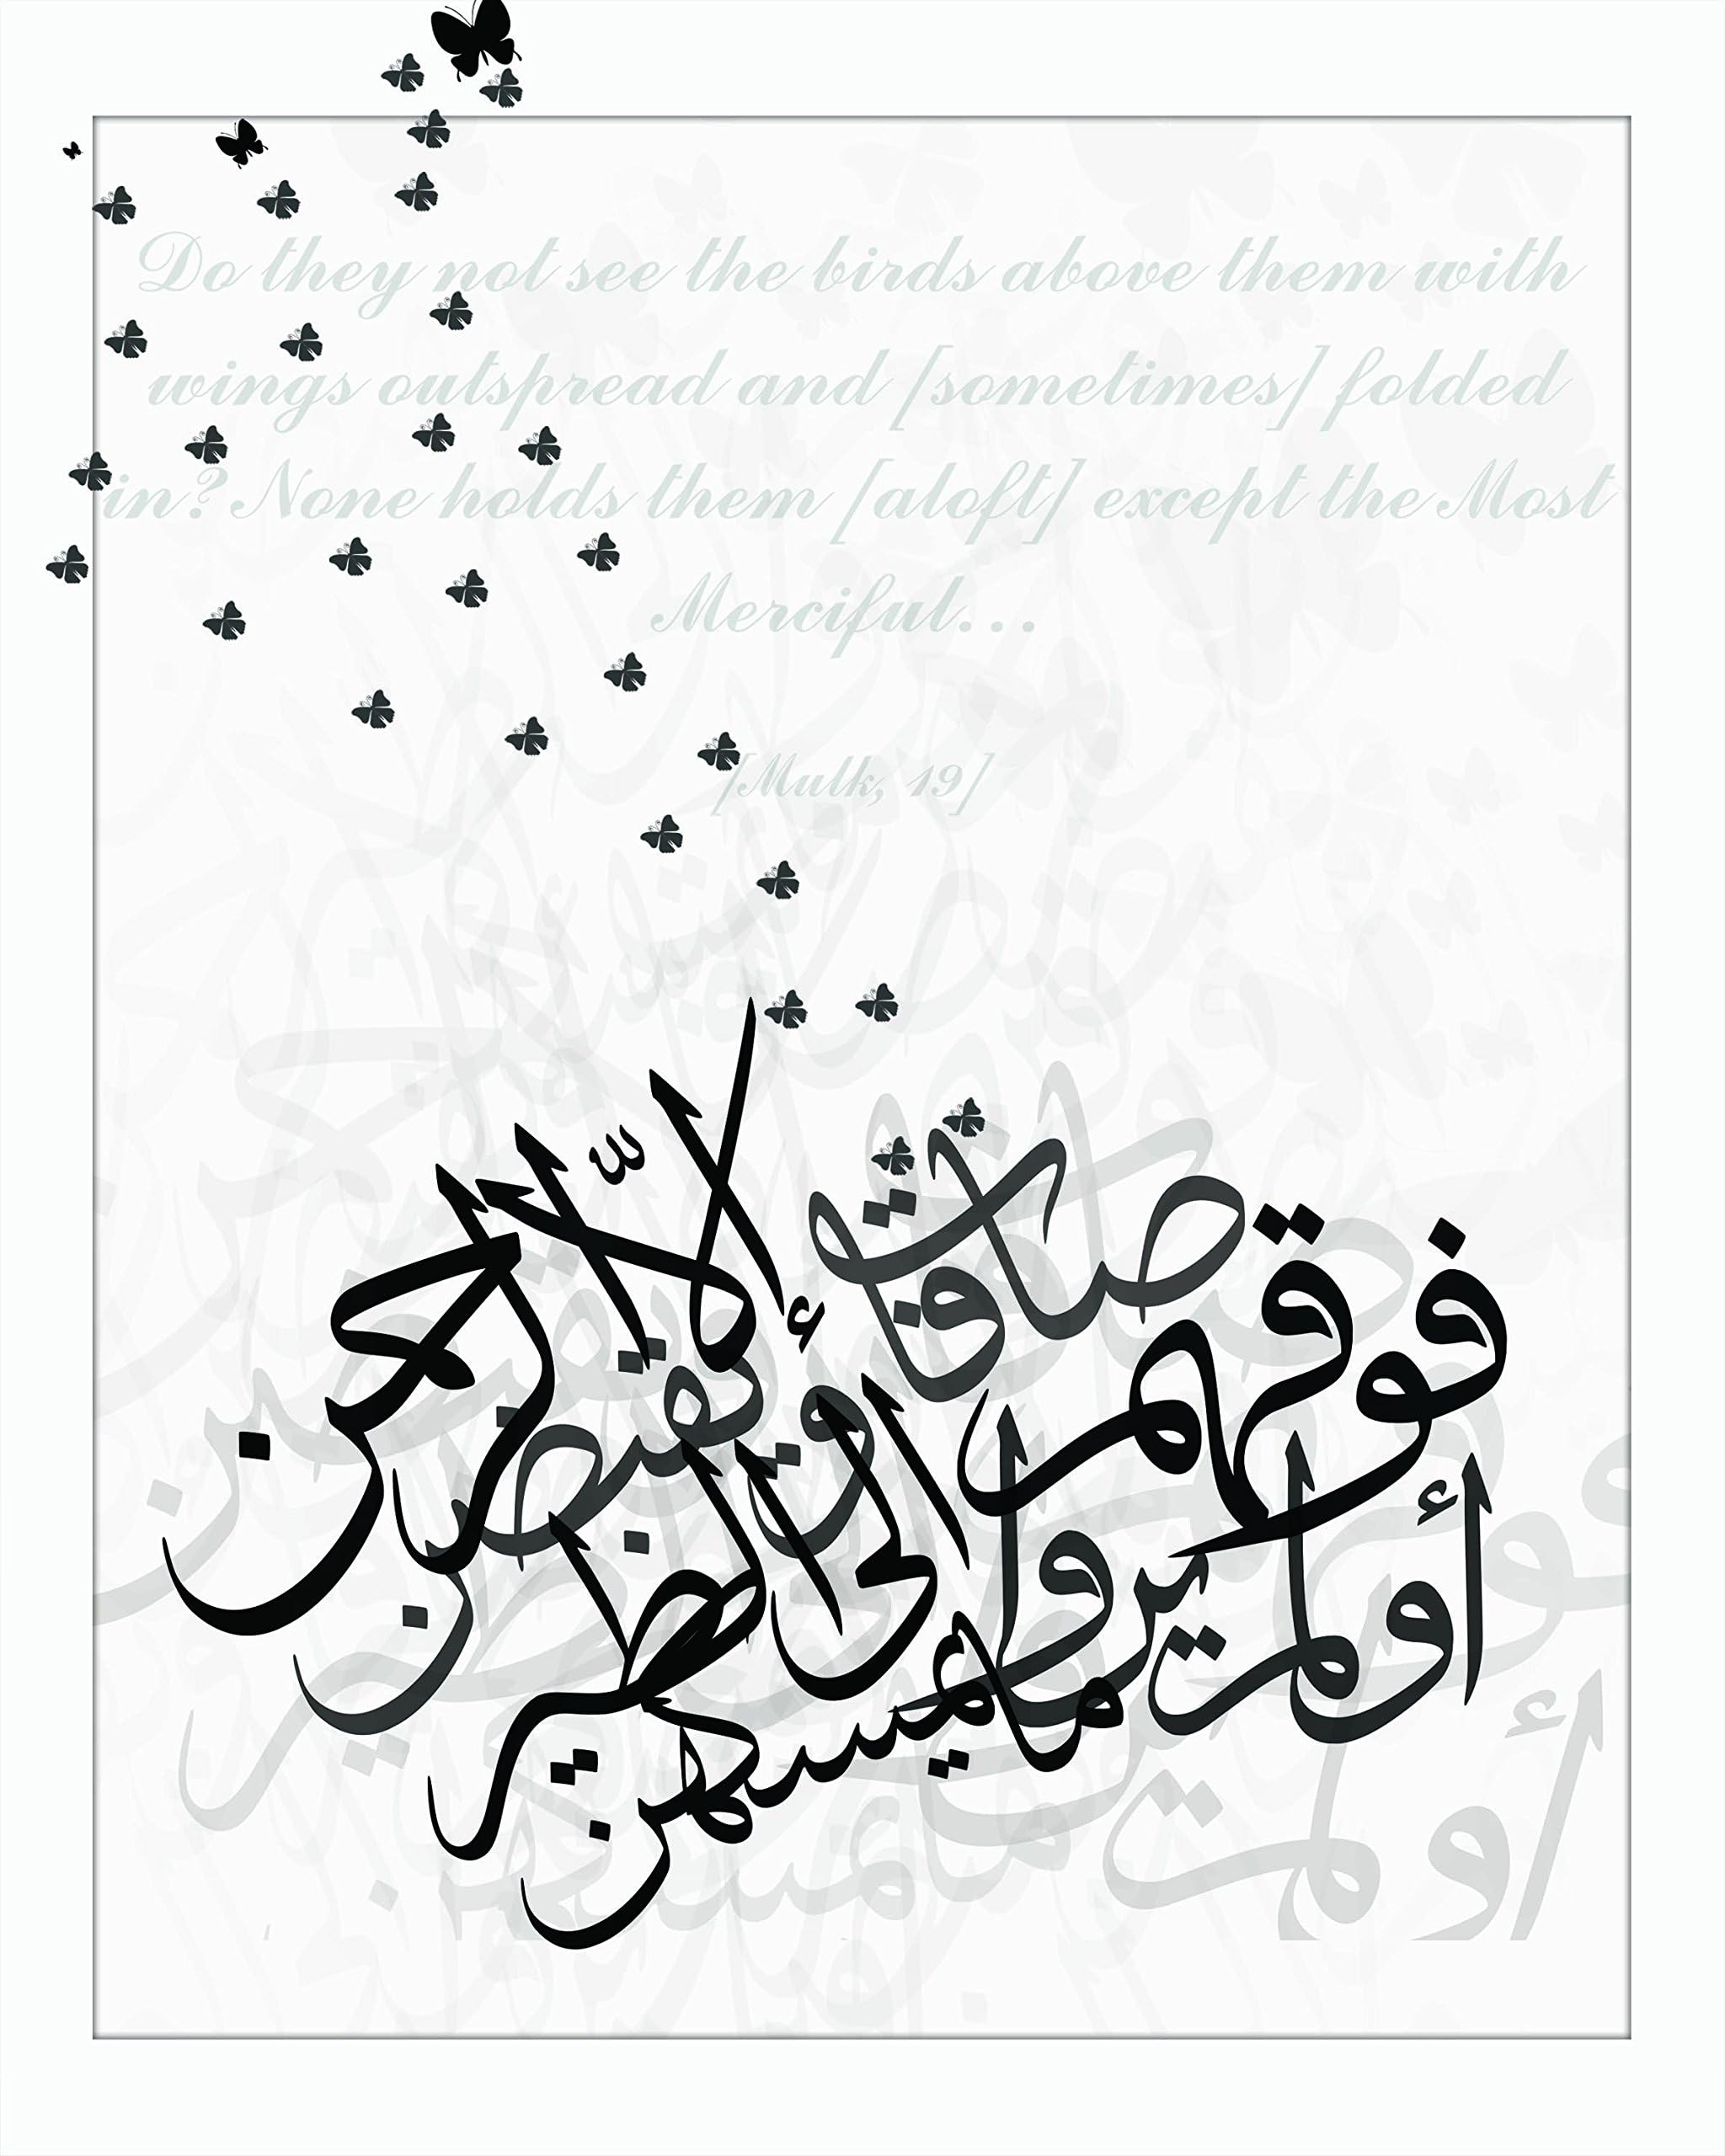 Do they not see the birds above them with
wings outspread and [sometimes] folded
in? None holds them [aloft] except the Most
Merciful...
[Mulk, 19]
أولم يروا إلى الطير
فوقهم صافات ويقبضن
ما يمسكهن
إلا الرحمن